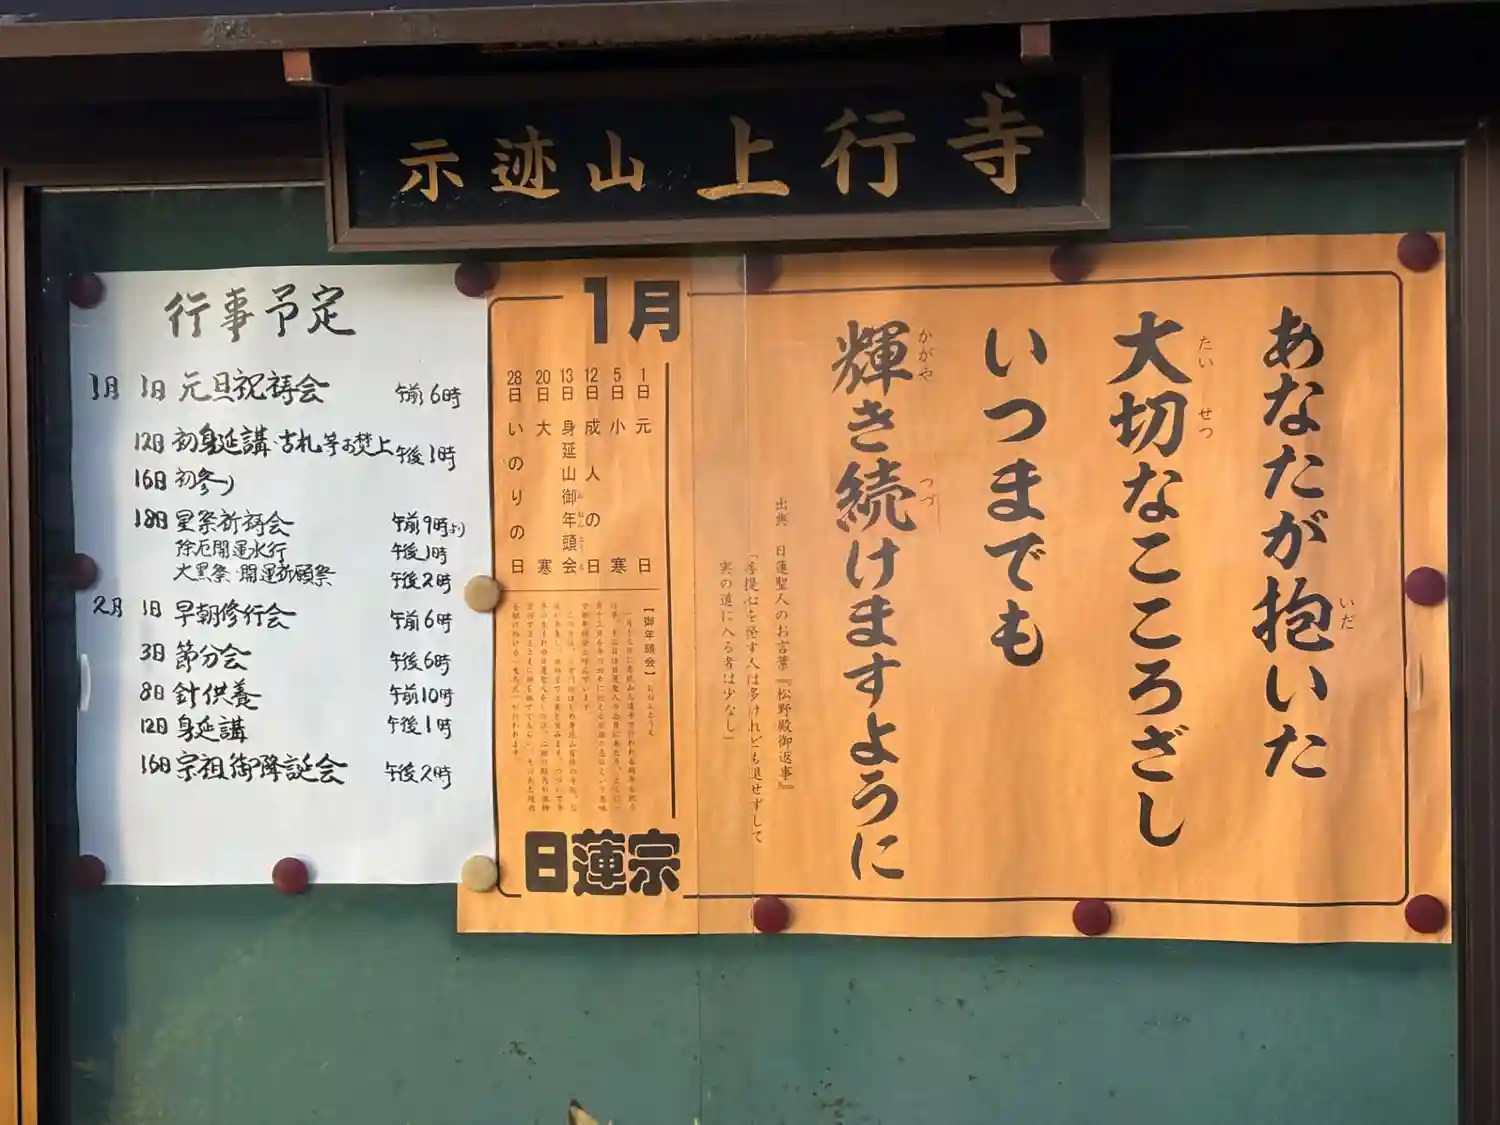 示迹山 上行寺
行事予定
1月 1日 元旦祝祷会 午前6時
12日 初身延講・古札等お焚上 午後1時
16日 初参り
18日 星祭祈祷会 午前9時より
除厄開運水行 午後1時
大黒祭・開運祈願祭 午後2時
2月 1日 早朝修行会 午前6時
3日 節分会 午後6時
8日 針供養 午前10時
12日 身延講 午後1時
16日 宗祖御降誕会 午後2時
あなたが抱いた
いだ
大切なこころざし
たい せつ
いつまでも
輝き続けますように
かがや つづ
出典 日蓮聖人のお言葉『松野殿御返事』
「菩提心を発す人は多けれども退せずして
実の道に入る者は少なし」
1月
1日 元日
5日 小寒
12日 成人の日
13日 身延山御年頭会
お ねん とう え
20日 大寒
28日 いのりの日
【御年頭会】おねんとうえ
日蓮宗